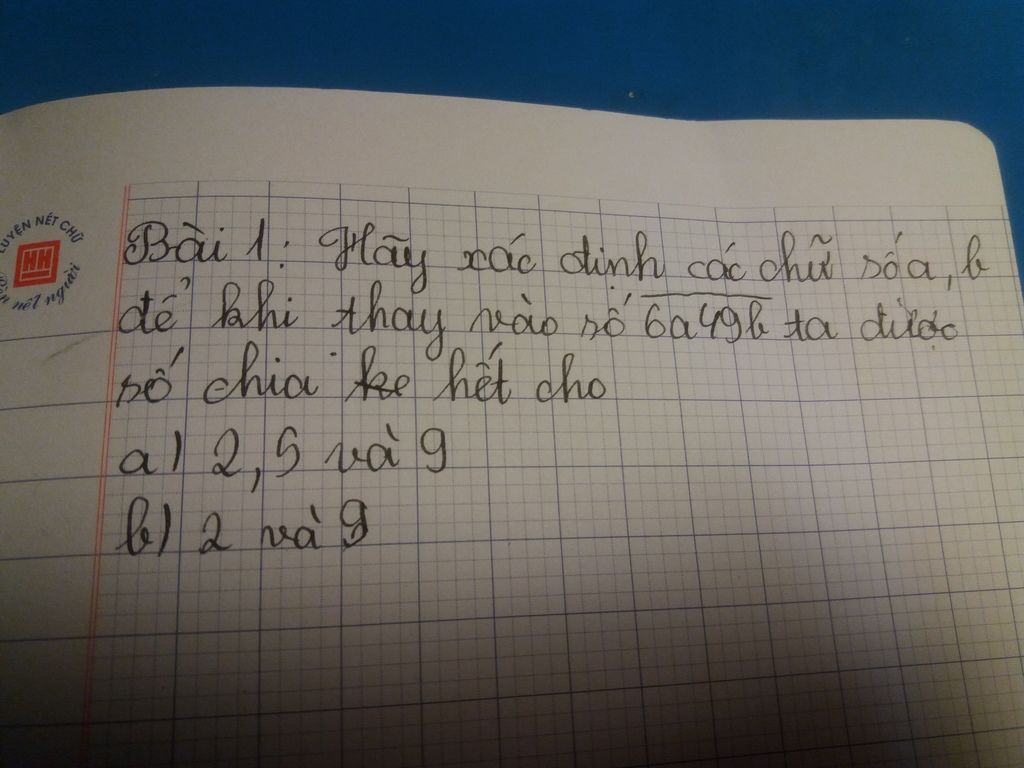 LUYỆN NÉT CHỮ
HH
nết người
Bài 1: Hãy xác định các chữ số a, b
để khi thay vào số 6a49b ta được
số chia hết cho
a) 2, 5 và 9
b) 2 và 9